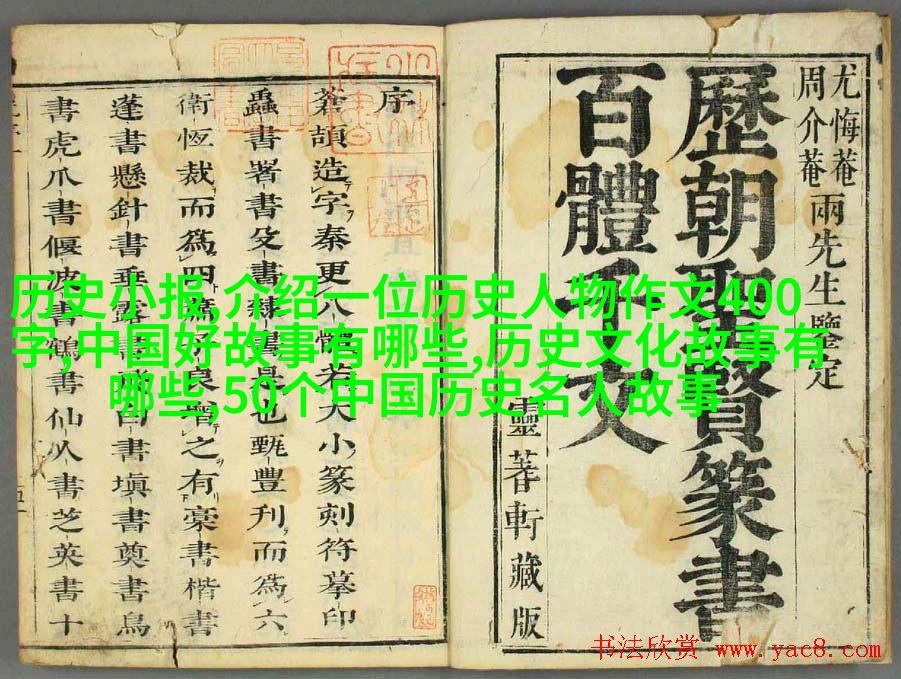 历史小报,介绍一位历史人物作文400
字,中国好故事有哪些,历史文化故事有
哪些,50个中国历史名人故事
尤悔菴
周介菴
兩先生鑒定
歷朝聖賢篆書
百體千文
靈蓍軒藏版
序
蒼頡造字秦更八體若大小篆刻符摹印
蟲書署書殳書隸書是也甄豐刋而爲六
衛恆裁而爲四良增之有藁書楷書
蓬書懸針書垂露書白書塡書奠書鳥
書虎爪書偃波書鶴書仙人書芝英書十
书法欣赏 www.yac8.com